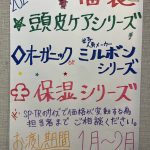 福袋
★頭皮ケアシリーズ
◇オーガニック
ミルボン
シリーズ
保湿シリーズ
※SP・TRのサイズで価格が変動する為
担当者までご相談ください。
お渡し期間
1月～2月